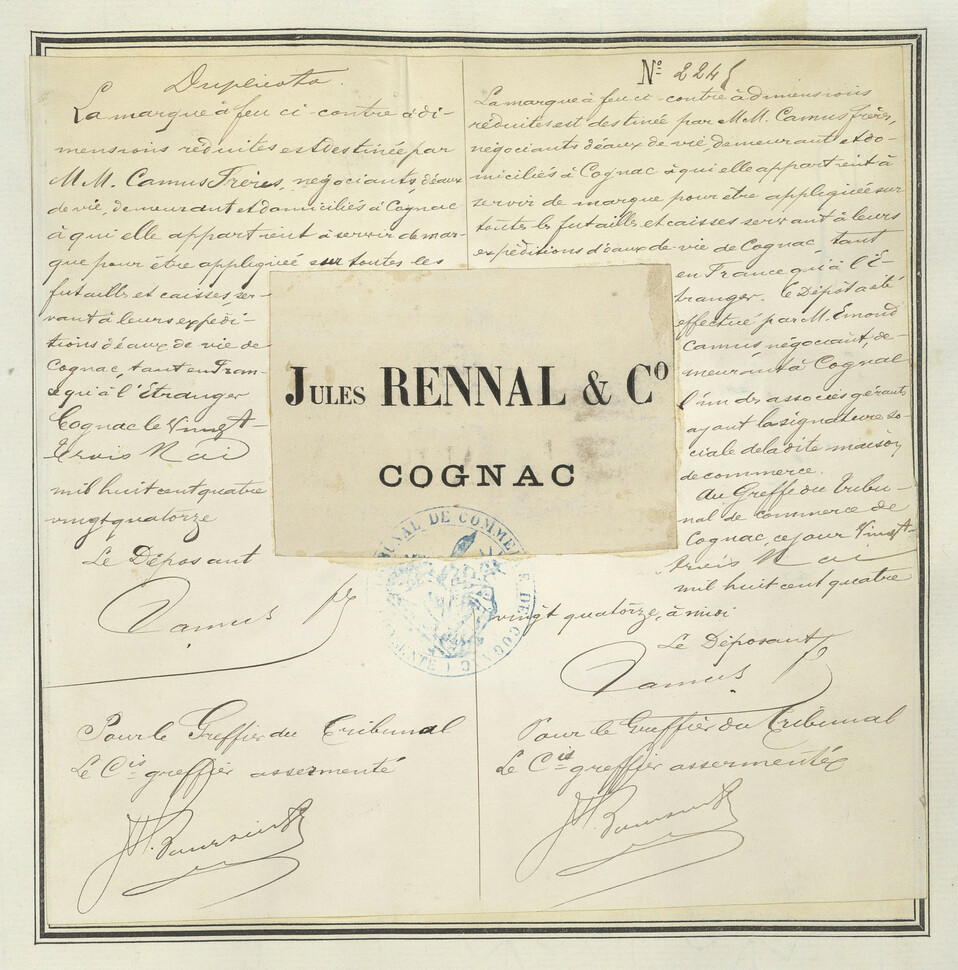 Duplicata.
La marque à feu ci-contre à di-
mensions réduites est destinée par
M.M. Camus Frères, négociants d'eaux
de vie, demeurant et domiciliés à Cognac
à qui elle appartient à servir de mar-
que pour être appliquée sur toutes les
futailles et caisses, ser-
vant à leurs expédi-
tions d'eaux de vie de
Cognac, tant en Fran-
ce qu'à l'Etranger
Cognac le Vingt-
trois Mai
mil huit cent quatre
vingt quatorze
Le Déposant
Camus
Pour le Greffier du Tribunal
Le Cis greffier assermenté
Nº 2245
La marque à feu ci-contre à dimensions
réduites est destinée par M.M. Camus frères,
négociants d'eaux de vie, demeurant et do-
miciliés à Cognac à qui elle appartient à
servir de marque pour être appliquée sur
toutes les futailles et caisses servant à leurs
expéditions d'eaux-de-vie de Cognac, tant
en France qu'à l'É-
tranger. Le Dépôt a été
effectué par M. Emond
Camus négociant, de-
meurant à Cognac
l'un des associés gérants
ayant la signature so-
ciale de la dite maison
de commerce.
Au Greffe du Tribu-
nal de commerce de
Cognac, ce jour Vingt-
trois Mai
mil huit cent quatre
vingt quatorze, à midi
Le Déposant
Camus
Pour le Greffier du Tribunal
Le Cis greffier assermenté
JULES RENNAL & Cº
COGNAC
TRIBUNAL DE COMMERCE DE COGNAC